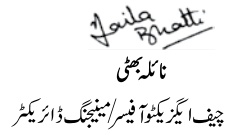 Naila
Bhatti
نائلہ بھٹی
چیف ایگزیکٹو آفیسر/مینیجنگ ڈائریکٹر